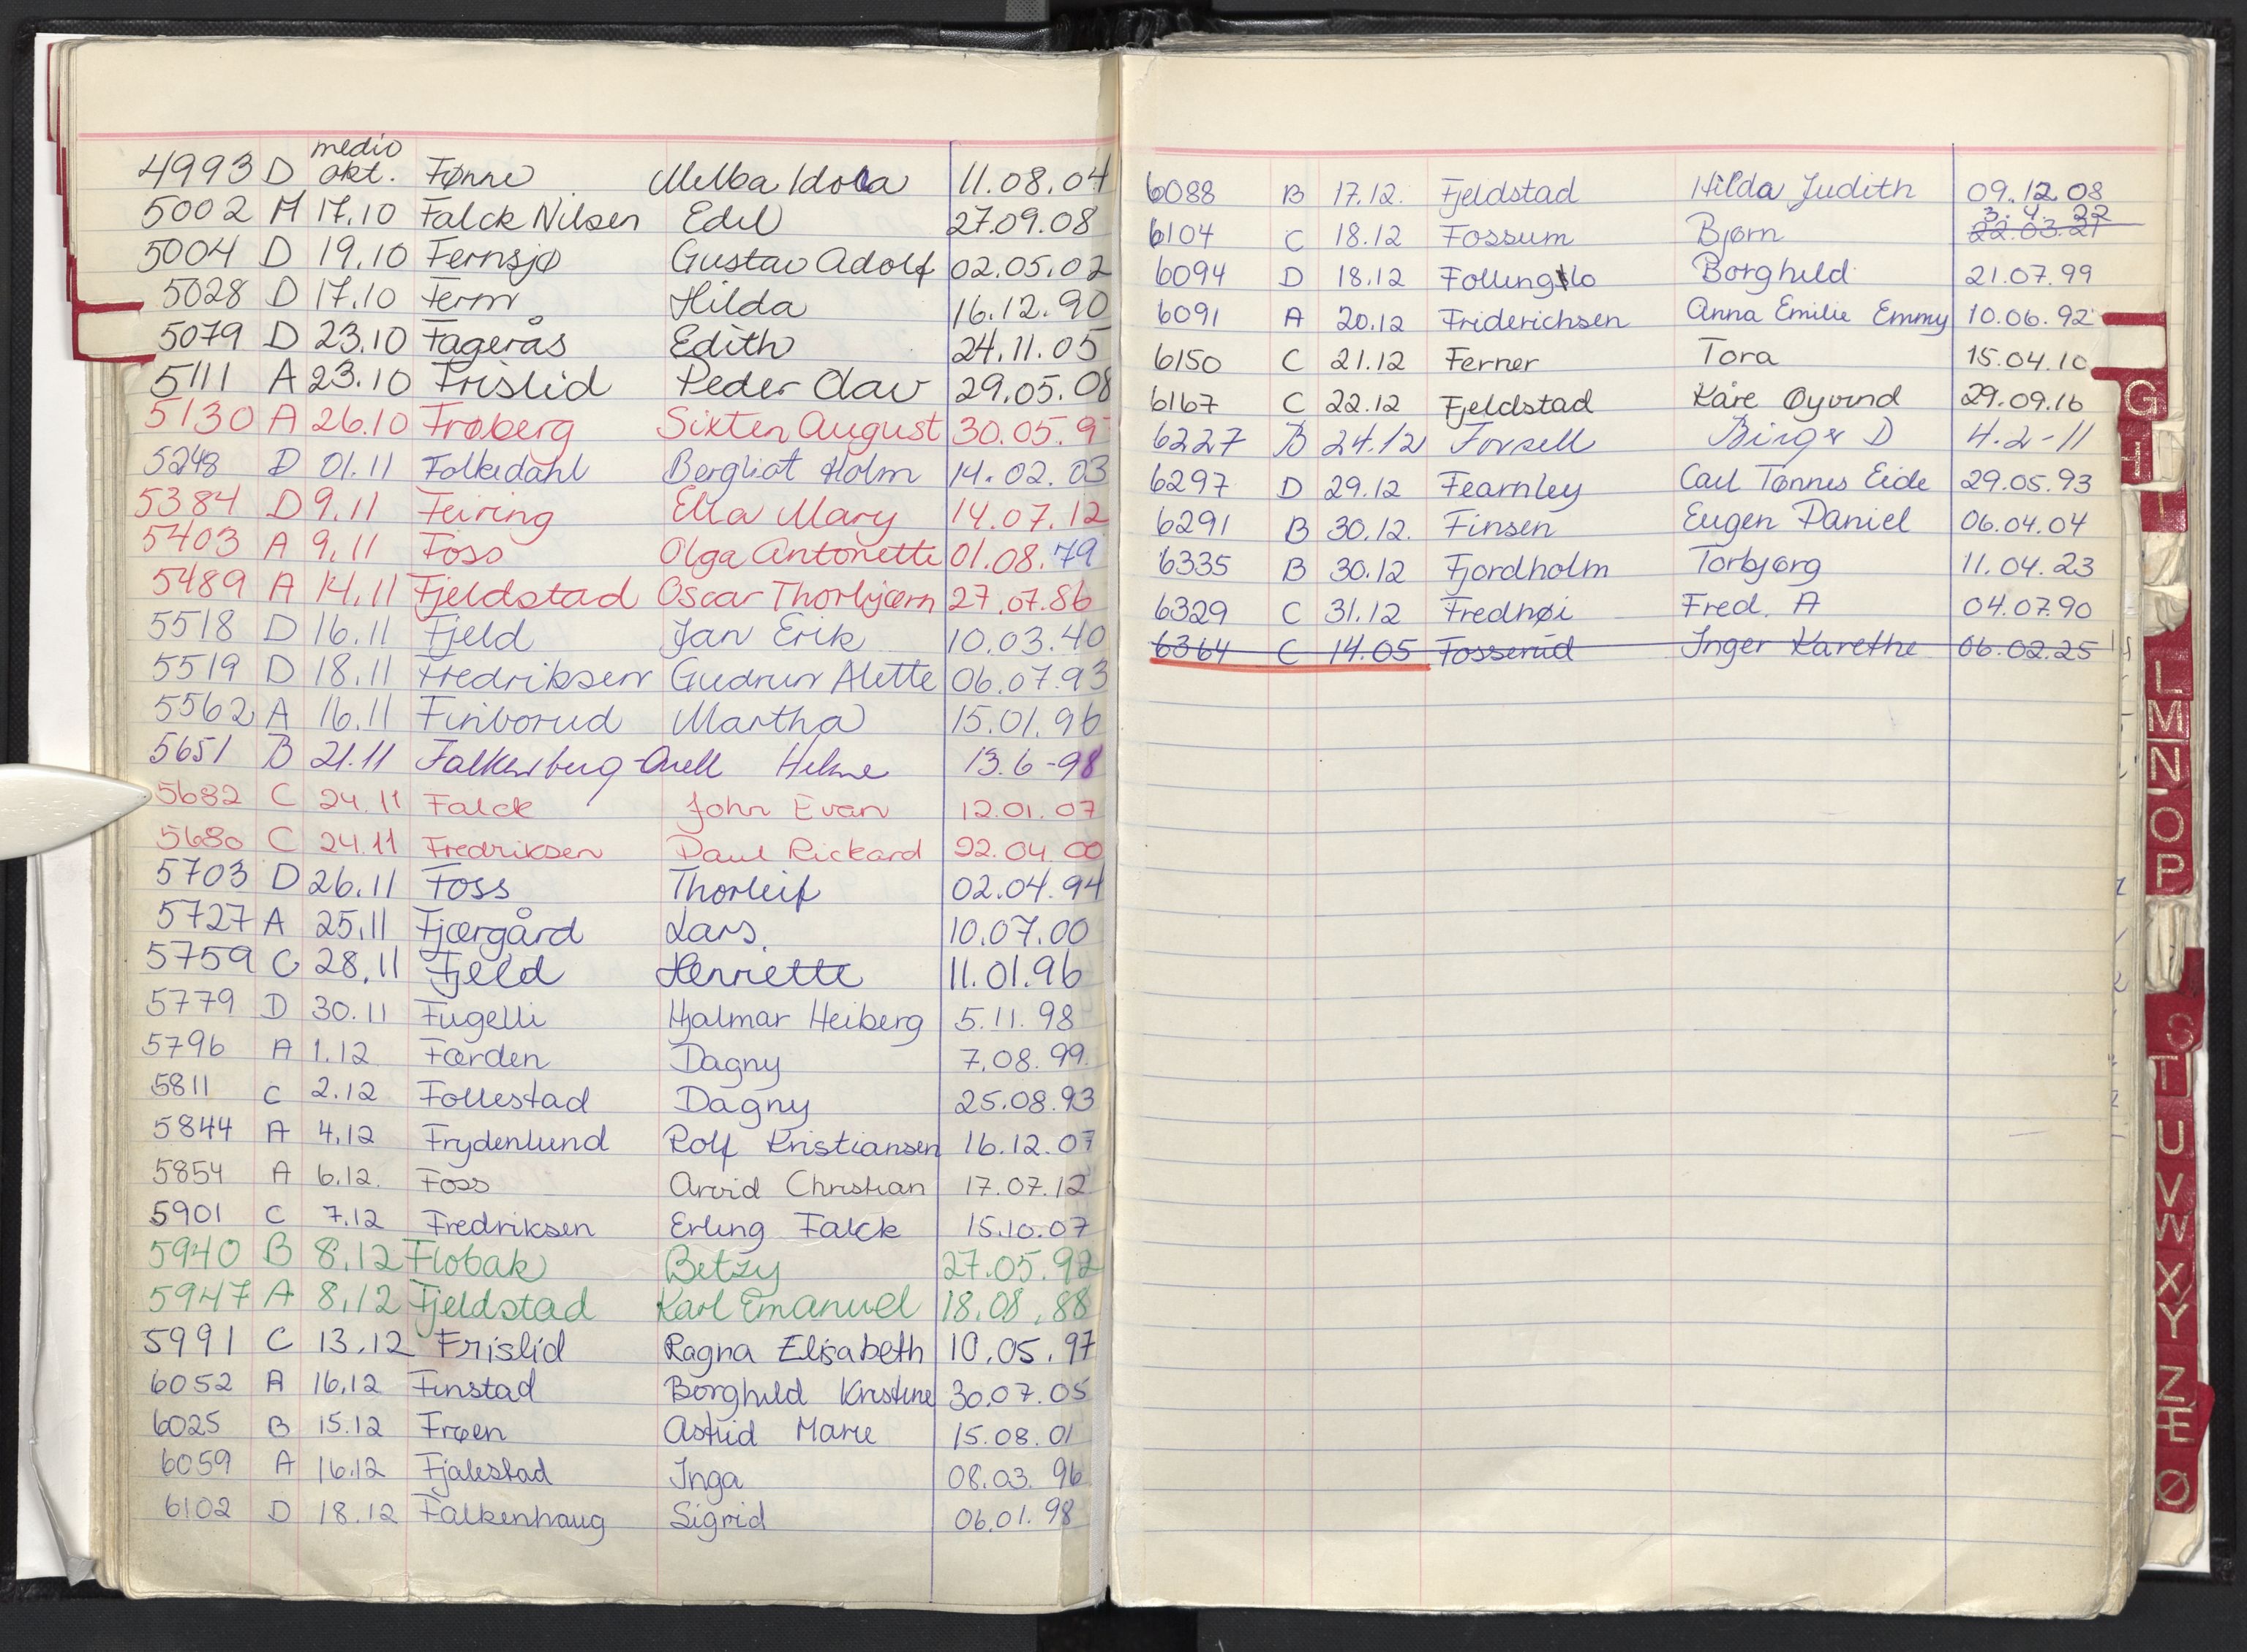 4993 D medio okt. Fønne Melba Idola 11.08.04
5002 A 17.10 Falck Nilsen Edel 27.09.08
5004 D 19.10 Fernsjø Gustav Adolf 02.05.02
5028 D 17.10 Ferm Hilda 16.12.90
5079 D 23.10 Fagerås Edith 24.11.05
5111 A 23.10 Frislid Peder Olav 29.05.08
5130 A 26.10 Frøberg Sixten August 30.05.9
5248 D 01.11 Folkedahl Bergliot Holm 14.02.03
5384 D 9.11 Feiring Ella Mary 14.07.12
5403 A 9.11 Foss Olga Antonette 01.08.79
5489 A 14.11 Fjeldstad Oscar Thorbjørn 27.07.86
5518 D 16.11 Fjeld Jan Erik 10.03.40
5519 D 18.11 Fredriksen Gudrun Alette 06.07.93
5562 A 16.11 Finborud Martha 15.01.96
5651 B 21.11 Falkenberg-Orell Helene 13.6-98
5682 C 24.11 Falck John Evan 12.01.07
5680 C 24.11 Fredriksen Paul Rickard 22.04.00
5703 D 26.11 Foss Thorleif 02.04.94
5727 A 25.11 Fjærgård Lars. 10.07.00
5759 C 28.11 Fjeld Henriette 11.01.96
5779 D 30.11 Fugelli Hjalmar Heiberg 5.11.98
5796 A 1.12 Færden Dagny 7.08.99
5811 C 2.12 Follestad Dagny 25.08.93
5844 A 4.12 Frydenlund Rolf Kristiansen 16.12.07
5854 A 6.12. Foss Arvid Christian 17.07.12
5901 C 7.12 Fredriksen Erling Falck 15.10.07
5940 B 8.12 Flobak Betzy 27.05.92
5947 A 8.12 Fjeldstad Karl Emanuel 18.08.88
5991 C 13.12 Frislid Ragna Elisabeth 10.05.97
6052 A 16.12 Finstad Borghild Kristine 30.07.05
6025 B 15.12 Frøen Astrid Marie 15.08.01
6059 A 16.12 Fjalestad Inga 08.03.96
6102 D 18.12 Falkenhaug Sigrid 06.01.98
6088 B 17.12. Fjeldstad Hilda Judith 09.12.08
3.4.22
6104 C 18.12 Fossum Bjørn 22.03.21
6094 D 18.12 Follingslo Borghild 21.07.99
6091 A 20.12 Friderichsen Anna Emilie Emmy 10.06.92
6150 C 21.12 Ferner Tora 15.04.10
6167 C 22.12 Fjeldstad Kåre Øyvind 29.09.16
6227 B 24.12 Forsell Birger D 4.2-11
6297 D 29.12 Fearnley Carl Tønnes Eide 29.05.93
6291 B 30.12. Finsen Eugen Daniel 06.04.04
6335 B 30.12 Fjordholm Torbjørg 11.04.23
6329 C 31.12 Fredhøi Fred. A 04.07.90
6364 C 14.05 Fosserud Inger Karethe 06.02.25
G
H
I
L
M
N
O
P
S
T
U
V
W
X
Y
Z
Æ
Ø